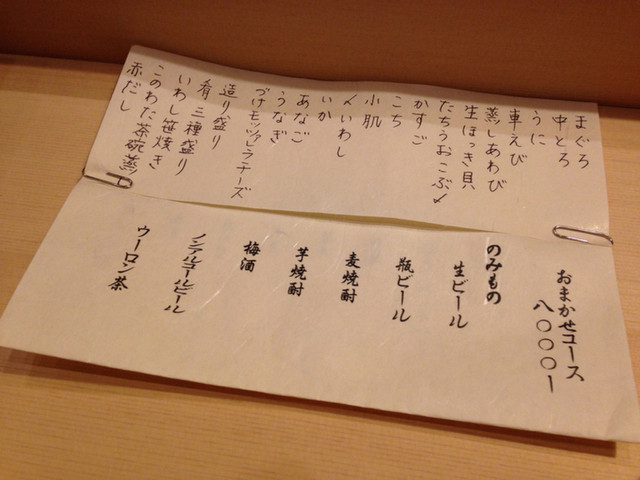 まぐろ
中とろ
うに
車えび
蒸しあわび
生ほっき貝
たちうおこぶ〆
かすご
こち
小肌
〆いわし
いか
あなご
うなぎ
づけモッツァレラチーズ
造り盛り
肴三種盛り
いわし笹焼き
このわた茶碗蒸し
赤だし
おまかせコース
八〇〇〇ー
のみもの
生ビール
瓶ビール
麦焼酎
芋焼酎
梅酒
ノンアルコールビール
ウーロン茶